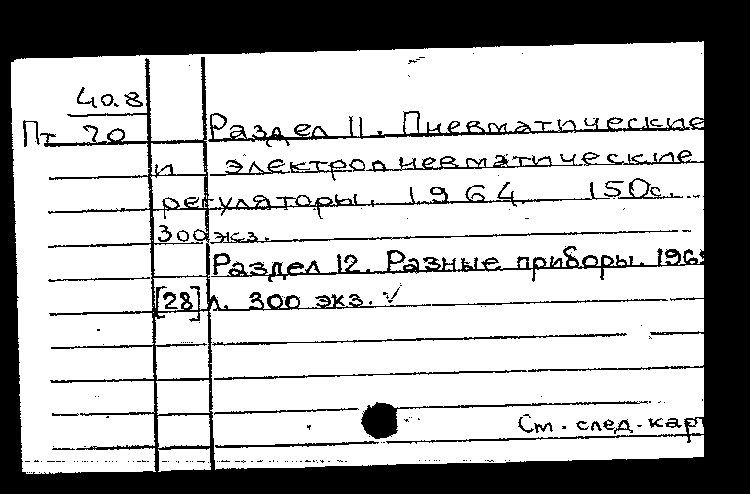 40.8
Пт 20 Раздел 11. Пневматические
и электропневматические
регуляторы. 1964 150с.
300 экз.
Раздел 12. Разные приборы.
[28] л. 300 экз. ✓
См. след. карт